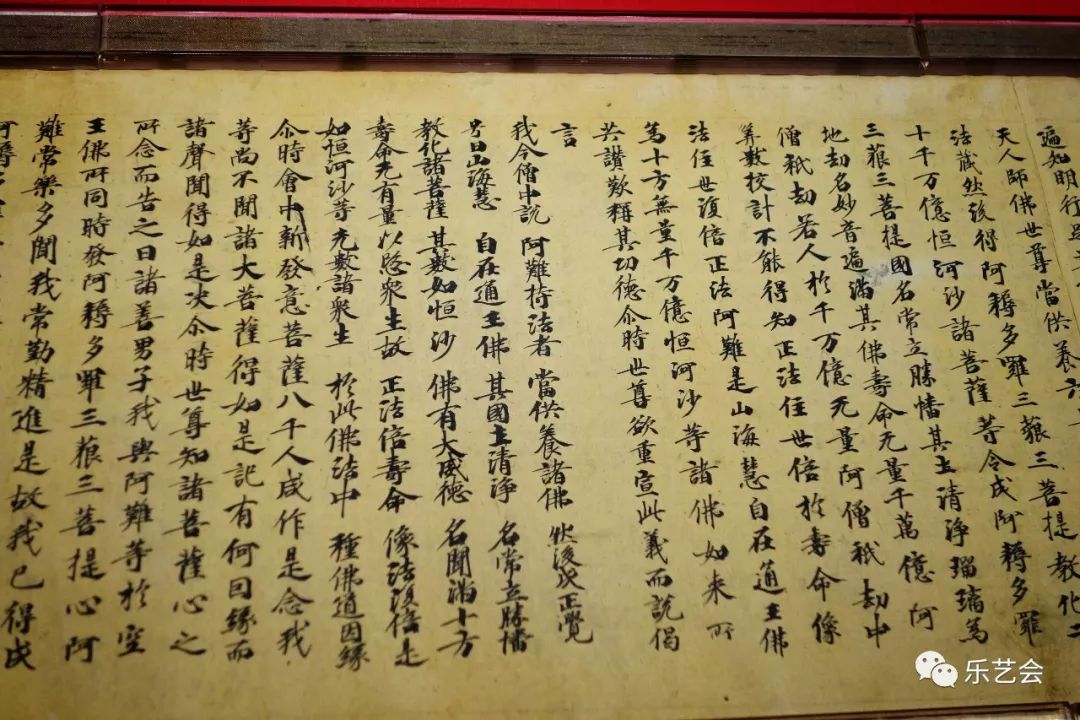 遍知明行
天人師佛世尊當供養六十
法藏然後得阿耨多羅三藐三菩提教化二
十千万億恒河沙諸菩薩等令成阿耨多羅
三藐三菩提國名常立勝幡其土清淨瑠璃為
地劫名妙音遍滿其佛壽命无量千萬億阿
僧祇劫若人於千万億无量阿僧祇劫中
筭數校計不能得知正法住世倍於壽命像
法住世復倍正法阿難是山海慧自在通王佛
為十方無量千万億恒河沙等諸佛如来所
共讚歎稱其功德尒時世尊欲重宣此義而說偈
言
我今僧中說 阿難持法者 當供養諸佛 然後成正覺
号曰山海慧 自在通王佛 其國土清淨 名常立勝幡
教化諸菩薩 其數如恒沙 佛有大威德 名聞滿十方
壽命无有量 以愍衆生故 正法倍壽命 像法復倍是
如恒河沙等 无數諸衆生 於此佛法中 種佛道因緣
尒時會中新發意菩薩八千人咸作是念我
等尚不聞諸大菩薩得如是記有何因緣而
諸聲聞得如是决尒時世尊知諸菩薩心之
所念而告之曰諸善男子我與阿難等於空
王佛所同時發阿耨多羅三藐三菩提心阿
難常樂多聞我常勤精進是故我已得成
阿耨多羅
乐艺会